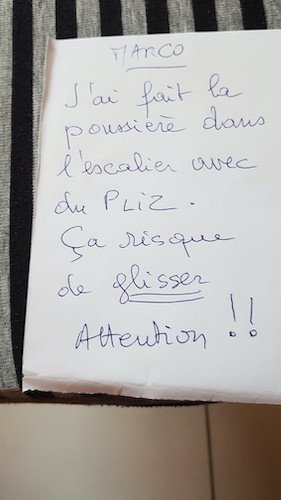 MARCO
J'ai fait la
poussière dans
l'escalier avec
du PLIZ.
Ça risque
de glisser
Attention !!